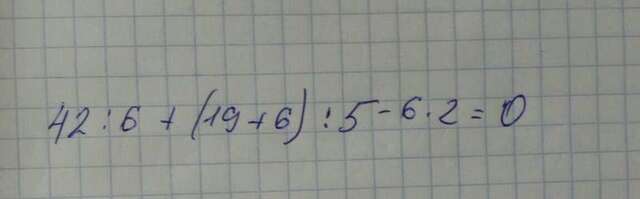 42 : 6 + (19 + 6) : 5 - 6 . 2 = 0